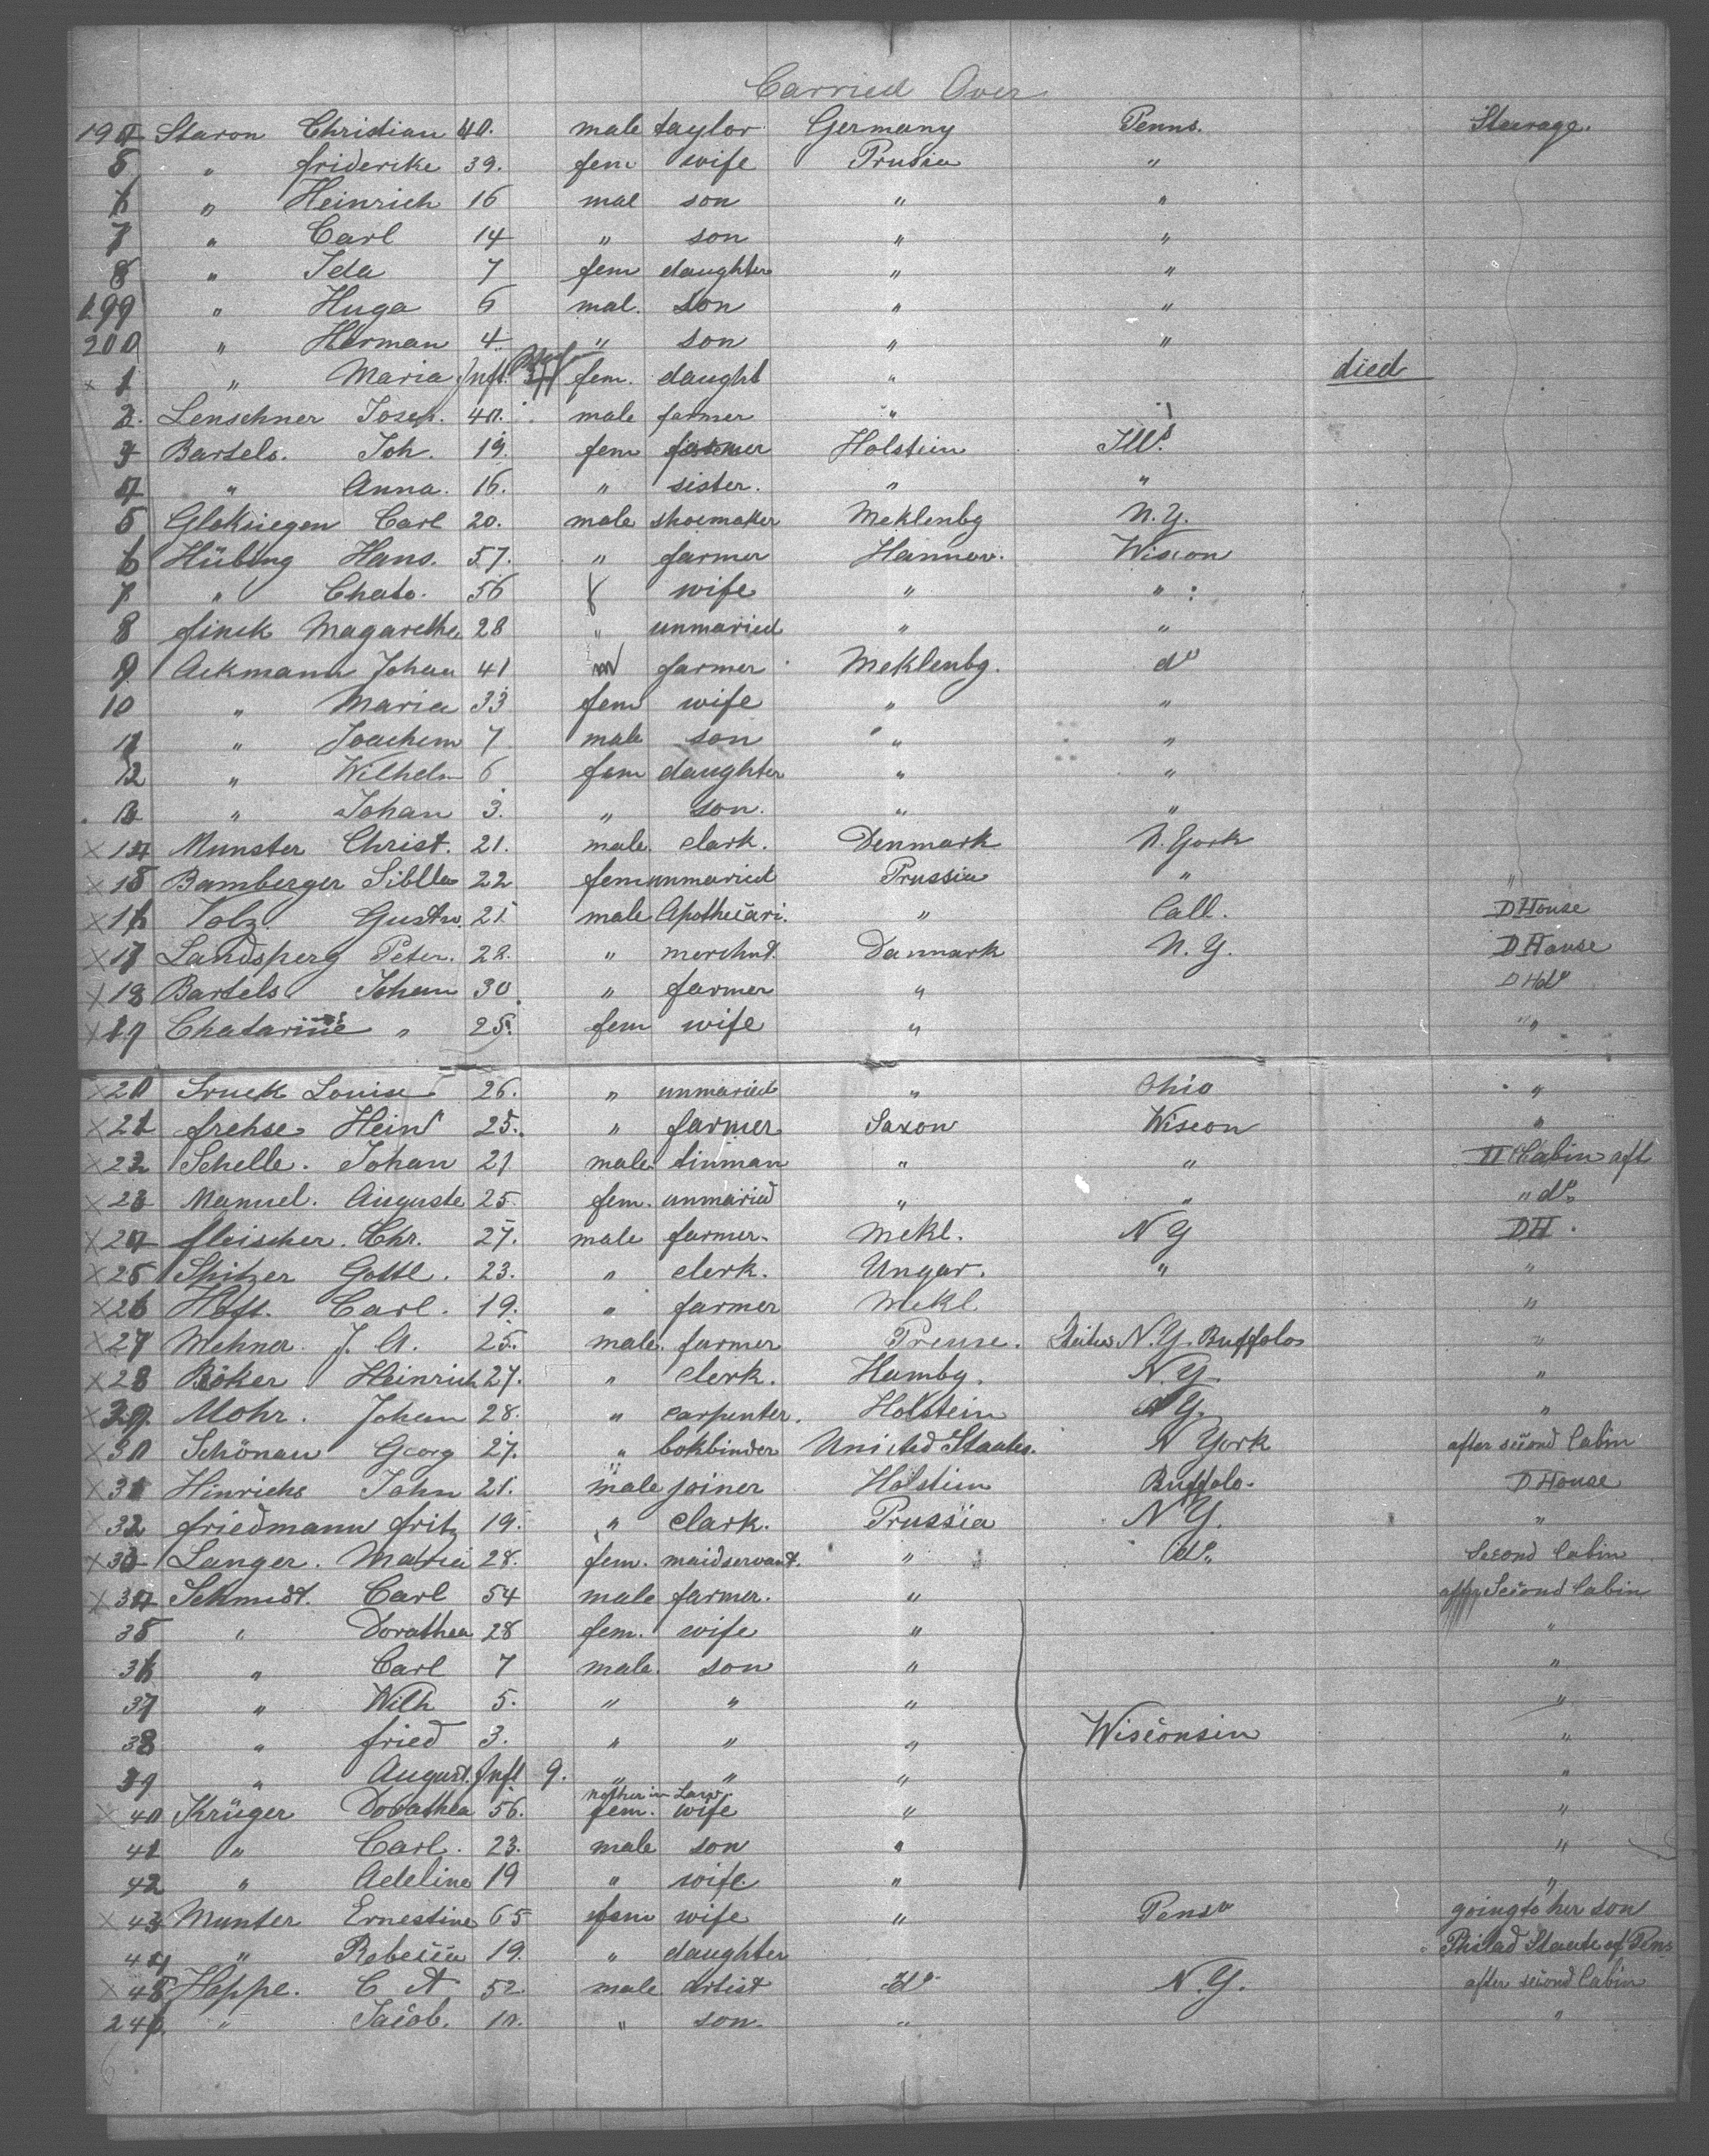 Carried Over
194 Staron Christian 40. male taylor Germany Penns. Steerage.
5 " friderike 39. fem wife Prusia "
6 " Heinrich 16 mal son " "
7 " Carl 14 " son " "
8 " Ida 7 fem daughter " "
199 " Huga 6 mal. son " "
200 " Herman 4 " son " "
x 1 " Maria Inft. fem. daught " died
2. Lenschner Josep. 40. male farmer " "
3 Bartels. Joh. 19. fem farmer Holstein Ill.
4 " Anna. 16. " sister. " "
5 Gloksiegen Carl 20. male shoemaker Meklenbg N.Y.
6 Hübing Hans. 57. " farmer Hannov. Wiscon
7 " Chato. 56 f wife " "
8 finck Magarethe 28 " unmaried " "
9 Ackmann Johan 41 m farmer Meklenbg. do
10 " Maria 33 fem wife " "
11 " Joachim 7 male son " "
12 " Wilhelm 6 fem daughter " "
13 " Johan 3. " son. " "
x 14 Munster Christ. 21. male. clark. Denmark N. York
x 15 Bamberger Siblla 22 fem unmaried Prussia " "
x 16 Volz Gustav. 21 male Apothecari. " Call. D House
x 17 Landsperg Peter. 28. " merchnt. Danmark N.Y. D House
x 18 Bartels Johan 30 " farmer " D Hdo
x 19 Chatarine " 25. fem wife " "
x 20 Struck Louise 26. " unmaried " Ohio "
x 21 frehse Hein 25. " farmer Saxon Wiscon "
x 22 Schelle. Johan 21 male tinman " " II Cabin aft
x 23 Manuel. Auguste 25 fem. unmaried " " " do
x 24 fleischer. Chr. 27. male farmer. Mekl. N Y DH.
x 25 Spitzer Gottl. 23. " clerk. Ungar. " "
x 26 Hoft. Carl. 19. " farmer Mekl. "
x 27 Mehner J. A. 25. male. farmer Preuse. States N.Y. Buffolo "
x 28 Böker Heinrich 27. " clerk. Hambg. N.Y. "
x 29 Mohr. Johan 28. " carpenter. Holstein N.Y. "
x 30 Schönau Georg 27. " bokbinder United Staates. N York after second Cabin
x 31 Hinrichs John 21. male joiner Holstein Buffolo. D House
x 32 friedmann fritz 19. " clark. Prussia N Y. "
x 33 Langer. Maria 28. fem. maidservant. " do. Second Cabin
x 34 Schmidt. Carl 54 male farmer. " Second Cabin
35 " Dorathea 28 fem. wife " "
36 " Carl 7 male. son " "
37 " Wilh 5. " " " "
38 " fried 3. " " " Wisconsin "
39 " August. Inft 9. " " " "
mother in Law
x 40 Krüger Dorathea 56. fem. wife " "
41 " Carl. 23. male son " "
42 " Adeline 19 " wife. " "
x 43 Munter Ernestine 65 fem wife " Pensa going to her son
44 " Rebecca 19. " daughter Philad Staate of Pens
x 45 Hoppe. C A 52 male artist do N.Y. after second Cabin
246 " Jacob. 10. " son. " "